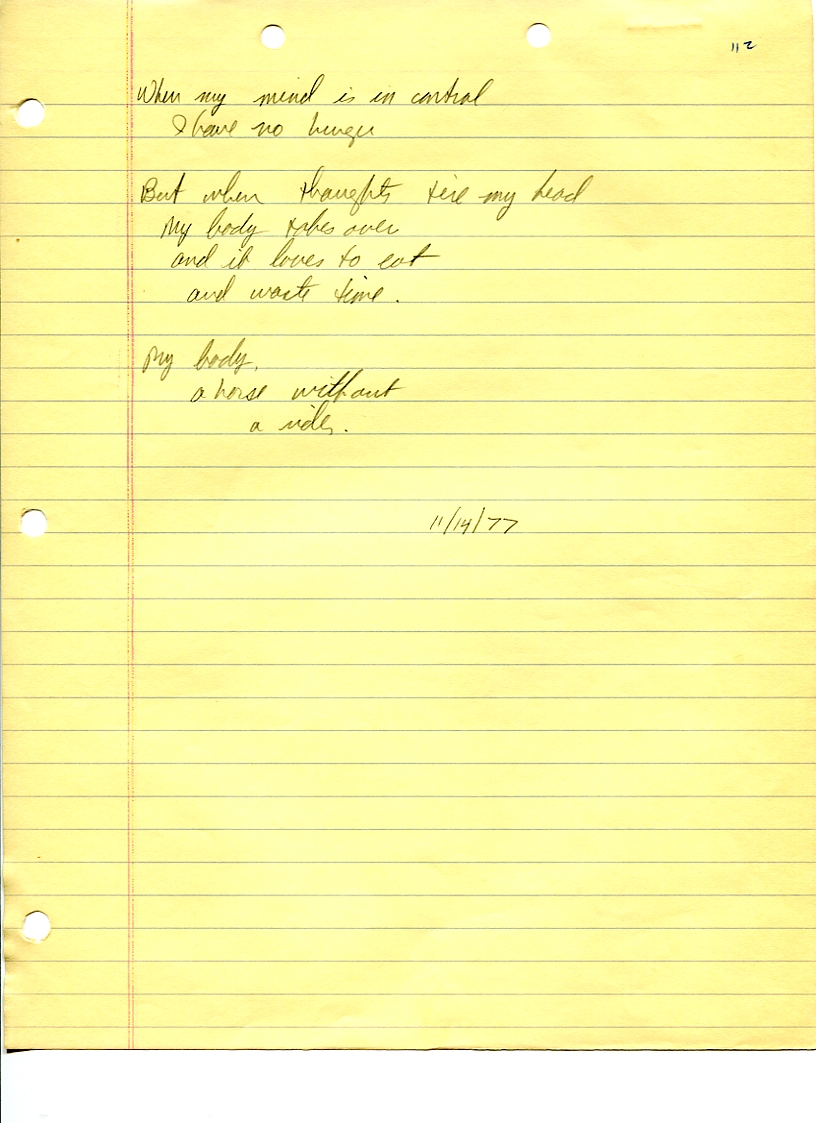 112
When my mind is in control
I have no hunger
But when thoughts tire my head
My body takes over
and it loves to eat
and waste time.
My body,
a horse without
a rider.
11/14/77